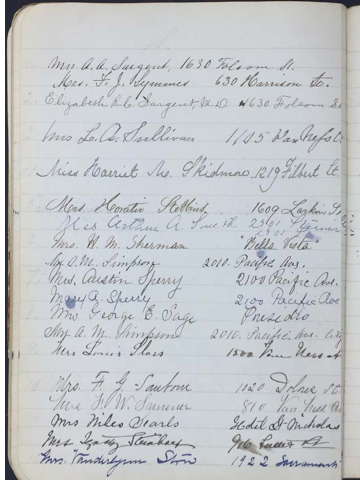 Mrs. A. A. Sargent, 1630 Folsom St.
Mrs. F. J. Symmes 630 Harrison St.
Elizabeth R. C. Sargent, M.D. 1630 Folsom St
Mrs L. A. Sullivan 1145 Van Ness
Miss Harriet M. Skidmore, 1219 Filbert St.
Mrs. Horatio Stebbins 1609 Larkin St.
Miss A. Smith 2301 Steiner
Mrs. W. M. Sherman Bella Vista
A. M. Simpson 2010. Pacific Ave.
Mrs. Austin Sperry 2100 Pacific Ave.
Mary A. Sperry 2100 Pacific Ave
Mrs George E. Sage Presidio
A. M. Simpson 2010. Pacific Ave. City
Mrs Louis Sloss 1500 Van Ness
Mrs. F. G. Sanborn 1120 Dolores St.
Mrs F. W. Sumner 810 Van Ness
Mrs Niles Searls Hotel St Nicholas
Mrs
Mrs. Vanderlynn Stow 1922 Sacramento